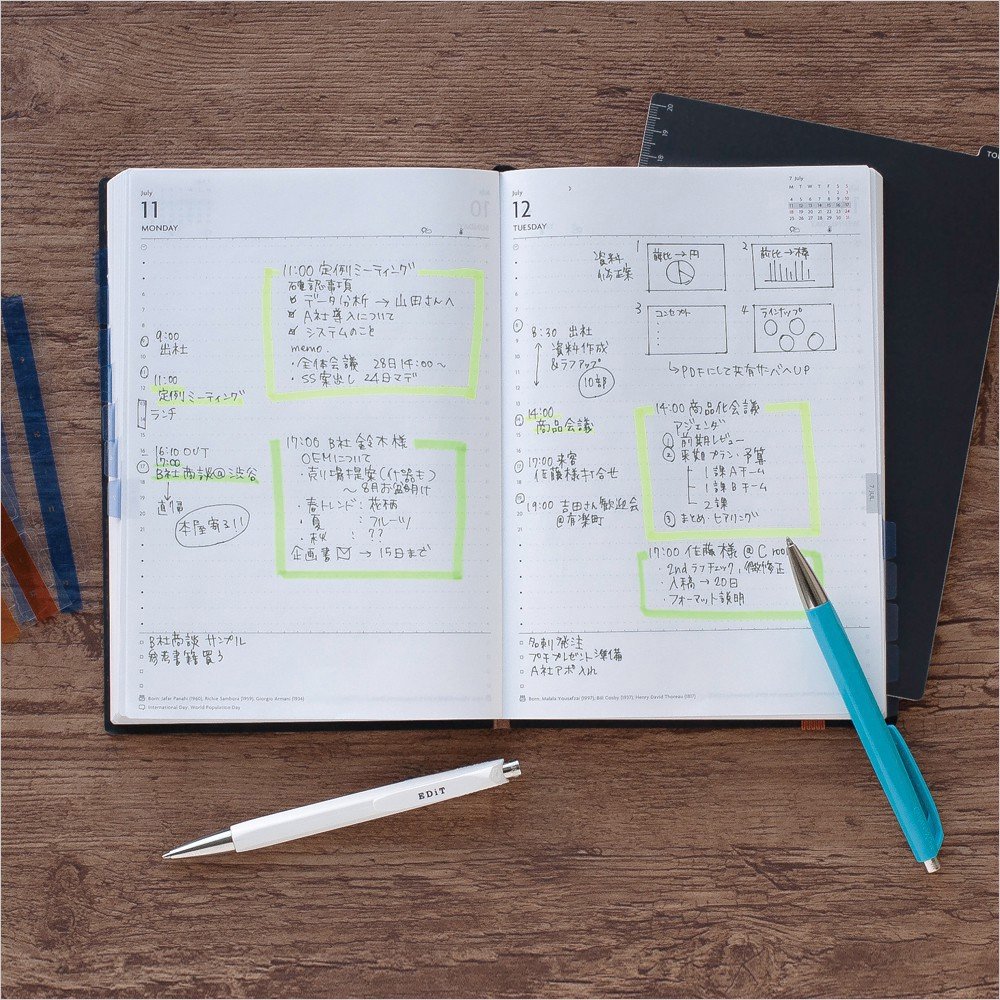 July
11
MONDAY
9:00
出社
11:00
定例ミーティング
ランチ
16:10 OUT
17:00
B社商談@渋谷
直帰
本屋寄る!!
11:00 定例ミーティング
確認事項
データ分析 → 山田さんへ
A社導入について
システムのこと
memo
・全体会議 28日14:00〜
・SS案出し 24日マデ
17:00 B社 鈴木様
OEMについて
・売り場提案(什器も)
〜8月お盆明け
・春トレンド:花柄
・夏 :フルーツ
・秋 :??
企画書 → 15日まで
B社商談 サンプル
参考書籍買う
Born: Jafar Panahi (1960), Richie Sambora (1959), Giorgio Armani (1934)
International Day: World Population Day
July
12
TUESDAY
7 July
M T W T F S S
1 2 3
4 5 6 7 8 9 10
11 12 13 14 15 16 17
18 19 20 21 22 23 24
25 26 27 28 29 30 31
資料
修正案
1
前比→円
2
前比→棒
3
コンセプト
4
ラインナップ
↳PDFにして共有サーバへUP
8:30 出社
資料作成
&ラフアップ
10部
14:00
商品会議
17:00 来客
佐藤様打合せ
19:00 吉田さん歓迎会
@有楽町
14:00 商品化会議
アジェンダ
① 前期レビュー
② 来期プラン・予算
1課Aチーム
1課Bチーム
2課
③ まとめ・ヒアリング
17:00 佐藤様 @C roo
・2nd ラフチェック、微修正
・入稿→20日
・フォーマット説明
名刺発注
プチプレゼント準備
A社アポ入れ
Born: Malala Yousafzai (1997), Bill Cosby (1937), Henry David Thoreau (1817)
7 JUL
20
19
18
EDiT